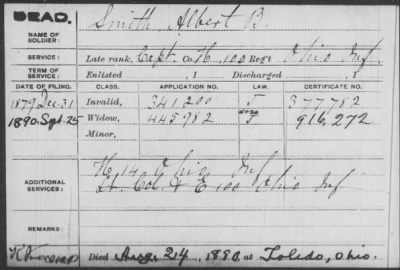 DEAD.
NAME OF SOLDIER: Smith Albert B.
SERVICE: Late rank, Capt. Co. H, 100 Reg't Ohio Inf.
TERM OF SERVICE: Enlisted , 1 Discharged , 1
DATE OF FILING. CLASS. APPLICATION NO. LAW. CERTIFICATE NO.
1879 Dec. 31 Invalid, 341,200 377,782
1890. Sept. 25 Widow, 445,982 916,272
Minor,
ADDITIONAL SERVICES: Ohio Inf
Lt. Col. & 100 Ohio Inf
REMARKS:
Died Aug. 24, 1890, at Toledo, Ohio.